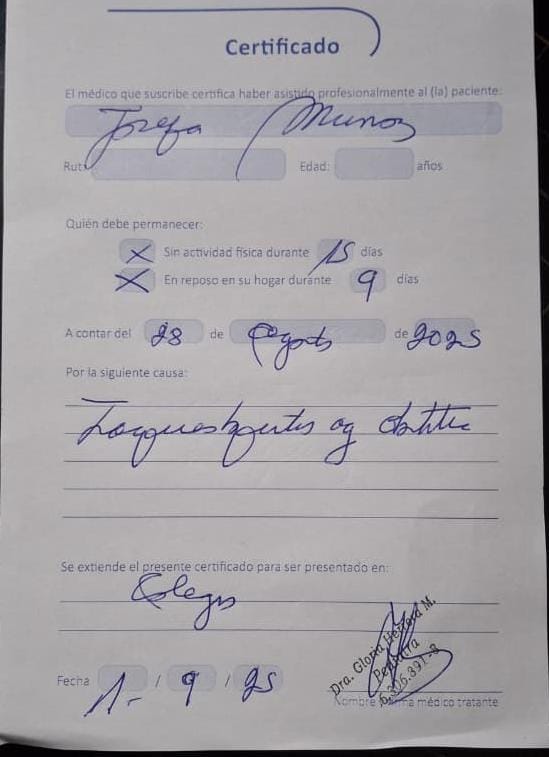 Certificado
El médico que suscribe certifica haber asistido profesionalmente al (la) paciente:
Josefa Munoz
Rut: Edad: años
Quién debe permanecer:
X Sin actividad física durante 15 días
X En reposo en su hogar durante 9 días
A contar del 28 de Agosto de 2025
Por la siguiente causa:
Se extiende el presente certificado para ser presentado en:
Colegio
Dra. Gloria Herrera M.
Pediatra
Fecha 1- / 9 / 25
médico tratante